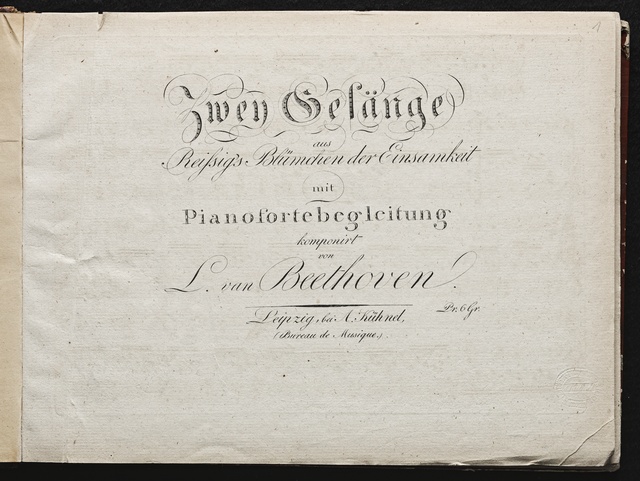 1
Zwey Gesänge
aus
Reißig's Blümchen der Einsamkeit
mit
Pianofortebegleitung
komponirt
von
L. van Beethoven.
Leipzig, bei A. Kühnel,
Pr. 6 Gr.
(Bureau de Musique.)